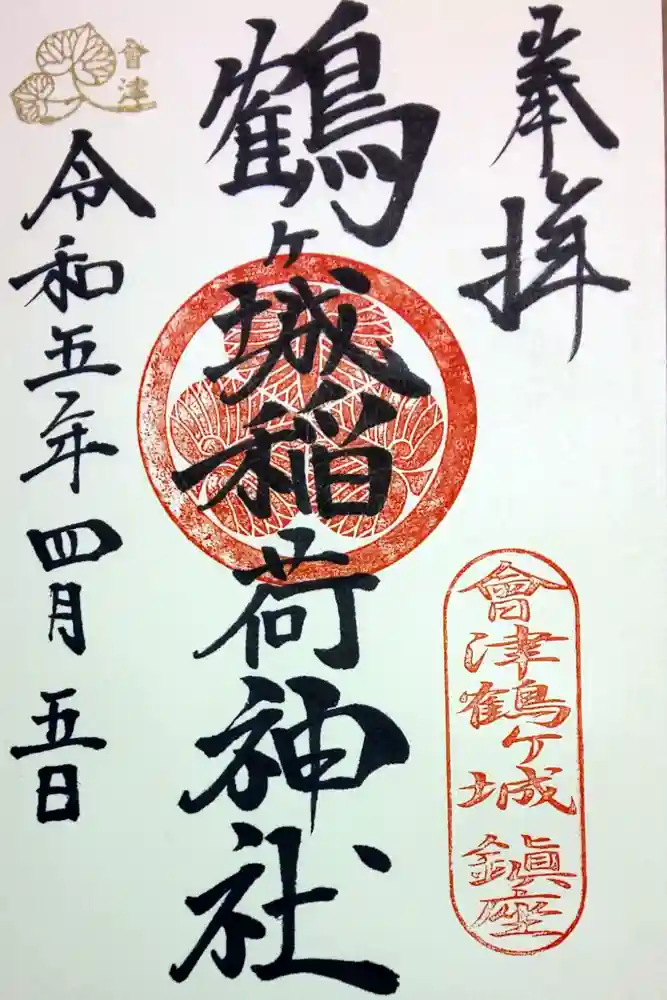 奉拝
會津鶴ヶ城鎮座
鶴ヶ城稲荷神社
會津
令和五年四月五日